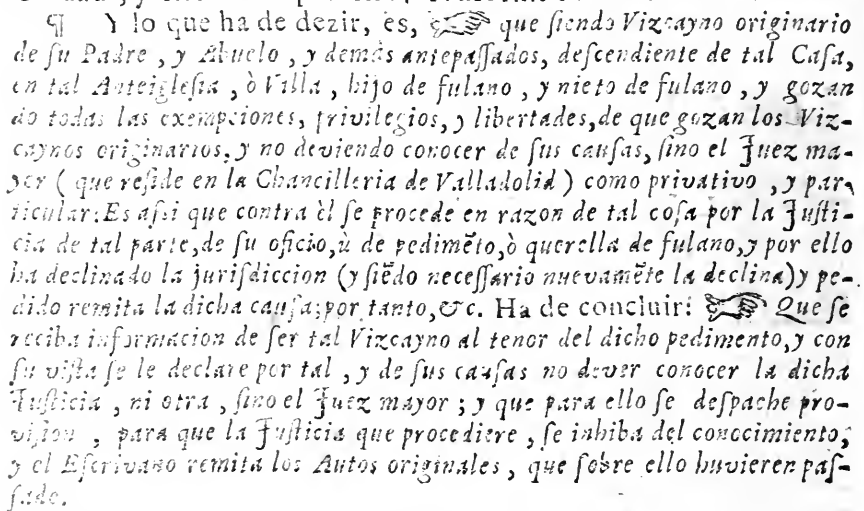 ¶ Y lo que ha de dezir, es, ☞ que ſiendo Vizcayno originario
de ſu Padre, y Abuelo, y demás antepaſſados, deſcendiente de tal Caſa,
en tal Anteigleſia, ò Villa, hijo de fulano, y nieto de fulano, y gozan
do todas las exempciones, privilegios, y libertades, de que gozan los Viz-
caynos originarios, y no deviendo conocer de ſus cauſas, ſino el Juez ma-
yor ( que reſide en la Chancilleria de Valladolid ) como privativo, y par,
ticular: Es aſsi que contra èl ſe procede en razon de tal coſa por la Juſti-
cia de tal parte, de ſu oficio, ù de pedimẽto, ò querella de fulano, y por ello
ha declinado la juriſdiccion (y ſiẽdo neceſſario nuevamẽte la declina) y pe-
dido remita la dicha cauſa; por tanto, &c. Ha de concluir: ☞ Que ſe
reciba informacion de ſer tal Vizcayno al tenor del dicho pedimento, y con
ſu viſta ſe le declare por tal, y de ſus cauſas no dever conocer la dicha
Juſticia, ni otra, ſino el Juez mayor; y que para ello ſe deſpache pro-
viſion, para que la Juſticia que procediere, ſe inhiba del conocimiento;
y el Eſcrivano remita los Autos originales, que ſobre ello huvieren paſ-
ſado.